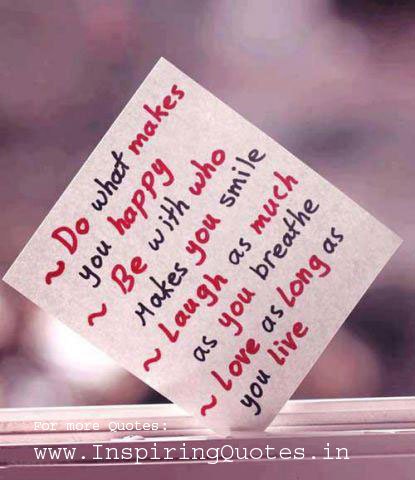 ~ Do what makes
you happy
~ Be with who
Makes you smile
~ Laugh as much
as you breathe
~ Love as long as
you live
For more Quotes:
www.InspiringQuotes.in